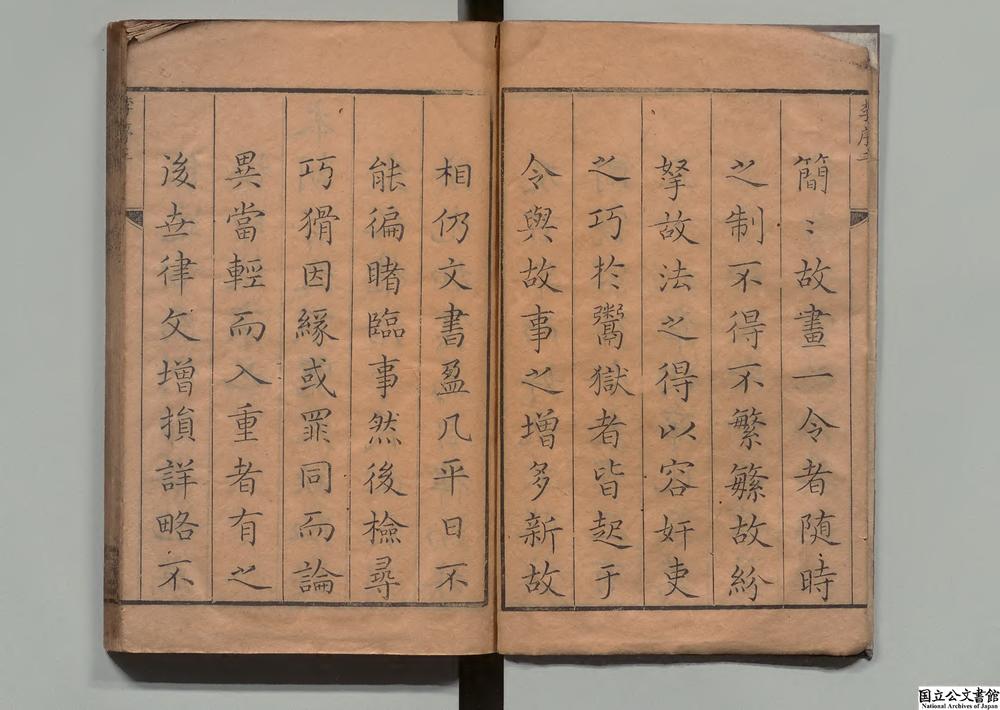 簡〻故畫一令者随時
之制不得不繁繁故紛
拏故法之得以容奸吏
之巧於鬻獄者皆起于
令與故事之增多新故
相仍文書盈几平日不
能徧睹臨事然後檢尋
巧猾因緣或罪同而論
異當輕而入重者有之
後世律文增損詳略不
李序
国立公文書館
National Archives of Japan